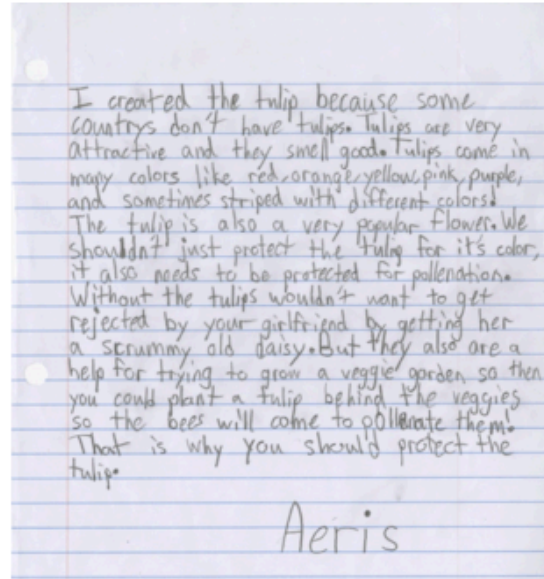 I created the tulip because some
countrys don't have tulips. Tulips are very
attractive and they smell good. Tulips come in
many colors like red, orange, yellow, pink, purple,
and sometimes striped with different colors!
The tulip is also a very popular flower. We
shouldn't just protect the tulip for it's color,
it also needs to be protected for pollenation.
Without the tulips wouldn't want to get
rejected by your girlfriend by getting her
a scrummy old daisy. But they also are a
help for trying to grow a veggie garden so then
you could plant a tulip behind the veggies
so the bees will come to pollenate them!
That is why you should protect the
tulip.
Aeris